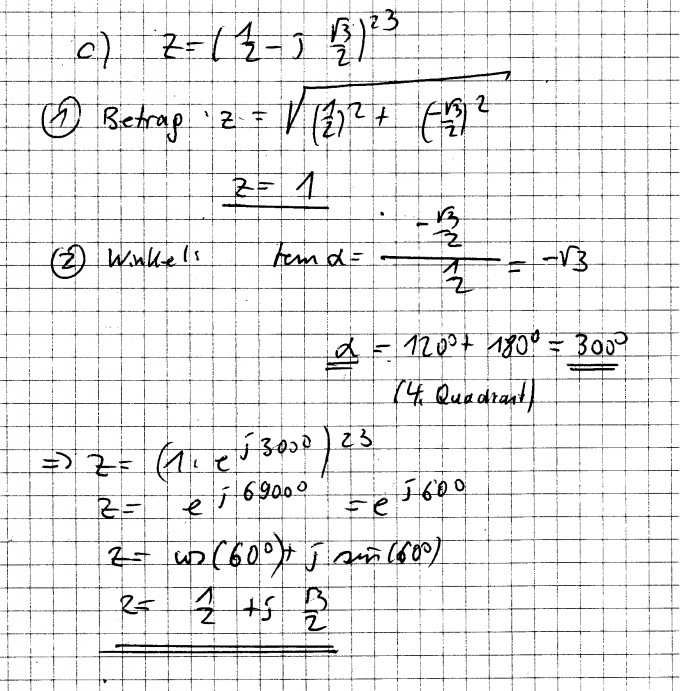 c) z = (1/2 - j √3/2)^23
① Betrag: z = √((1/2)^2 + (-√3/2)^2)
z = 1
② Winkel: tan α = (-√3/2)/(1/2) = -√3
α = 120° + 180° = 300°
(4. Quadrant)
=> z = (1 · e^(j300°))^23
z = e^(j6900°) = e^(j60°)
z = cos(60°) + j sin(60°)
z = 1/2 + j √3/2